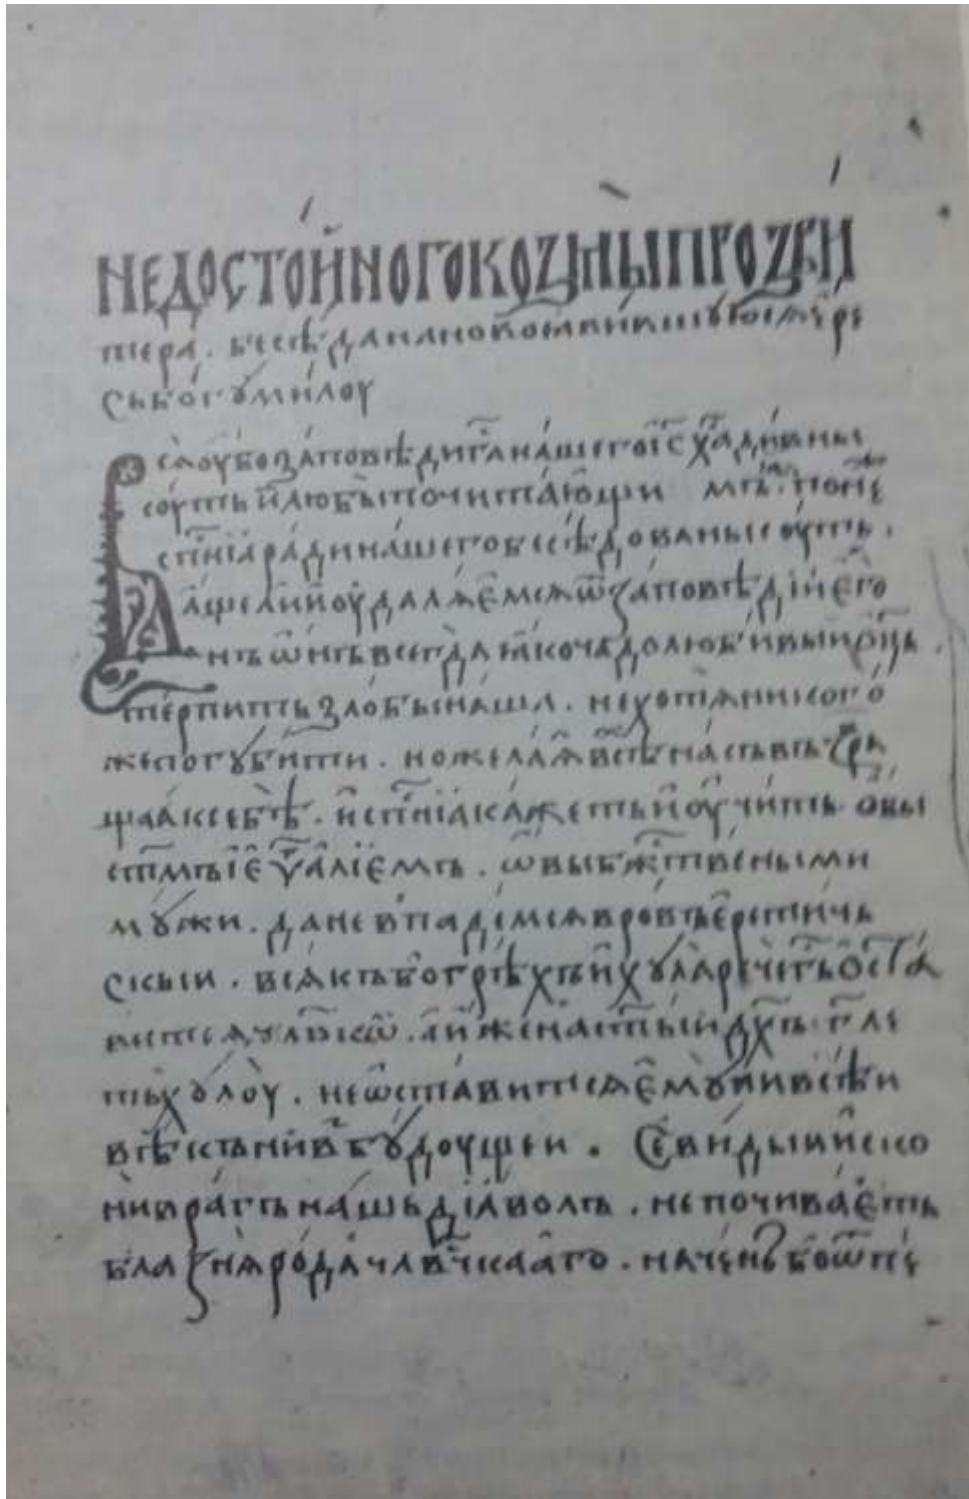 недостойного козмы прозви
тера. бесѣда на новоꙗвившуюсѧ ере
сь богѹмилоу
Всѧ оубо заповѣди г҃а нашего і҃с х҃а дивны
соуть и любы почитающимъ ꙗ. поне
сп҃нїа ради нашего бесѣдованы соуть.
аще ли и оудалѧемсѧ ѿ заповѣдїи его
нъ ѡнъ всегда ꙗко чадолюбивыи ѡц҃ь.
терпить злобы нашѧ. не хотѧ никого
же погѹбити. но желаѧ всѣ насъ въ обра
щаа к себѣ. и сп҃нїа кажеть и оучить. овы
ст҃мъ і еѵ҃алїемъ. ѡвы бж҃твеными
мѹжи. да не впадемсѧ в ровъ еретичь
скыи. всѧкъ бо грѣхъ и хѹла рече гь ѡста
витсѧ чл҃вкѡ. а иже на ст҃ыи дх҃ъ гл҃е
тъ хѹлоу. не ѡставитсѧ емѹ ни в сѣи
вѣкъ ни в бѹдоущеи. Се видыи иско
ни врагъ нашь дїаволъ. не почиваеть
блазнѧ рода члв҃чкааго. начен бо ѿ пе